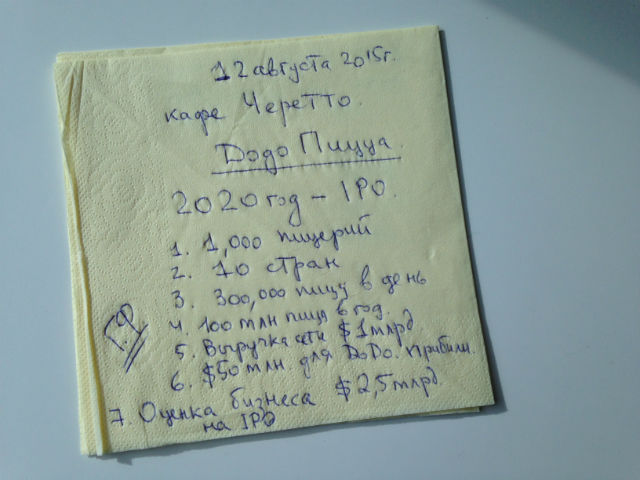 12 августа 2015г.
кафе Черетто.
Додо Пицца.
2020 год – IPO.
1. 1,000 пицерий
2. 10 стран
3. 300,000 пицц в день
4. 100 млн пицц в год.
5. Выручка сети $1 млрд
6. $50 млн для DoDo. прибыли.
7. Оценка бизнеса $2,5 млрд
на IPO
ГФ